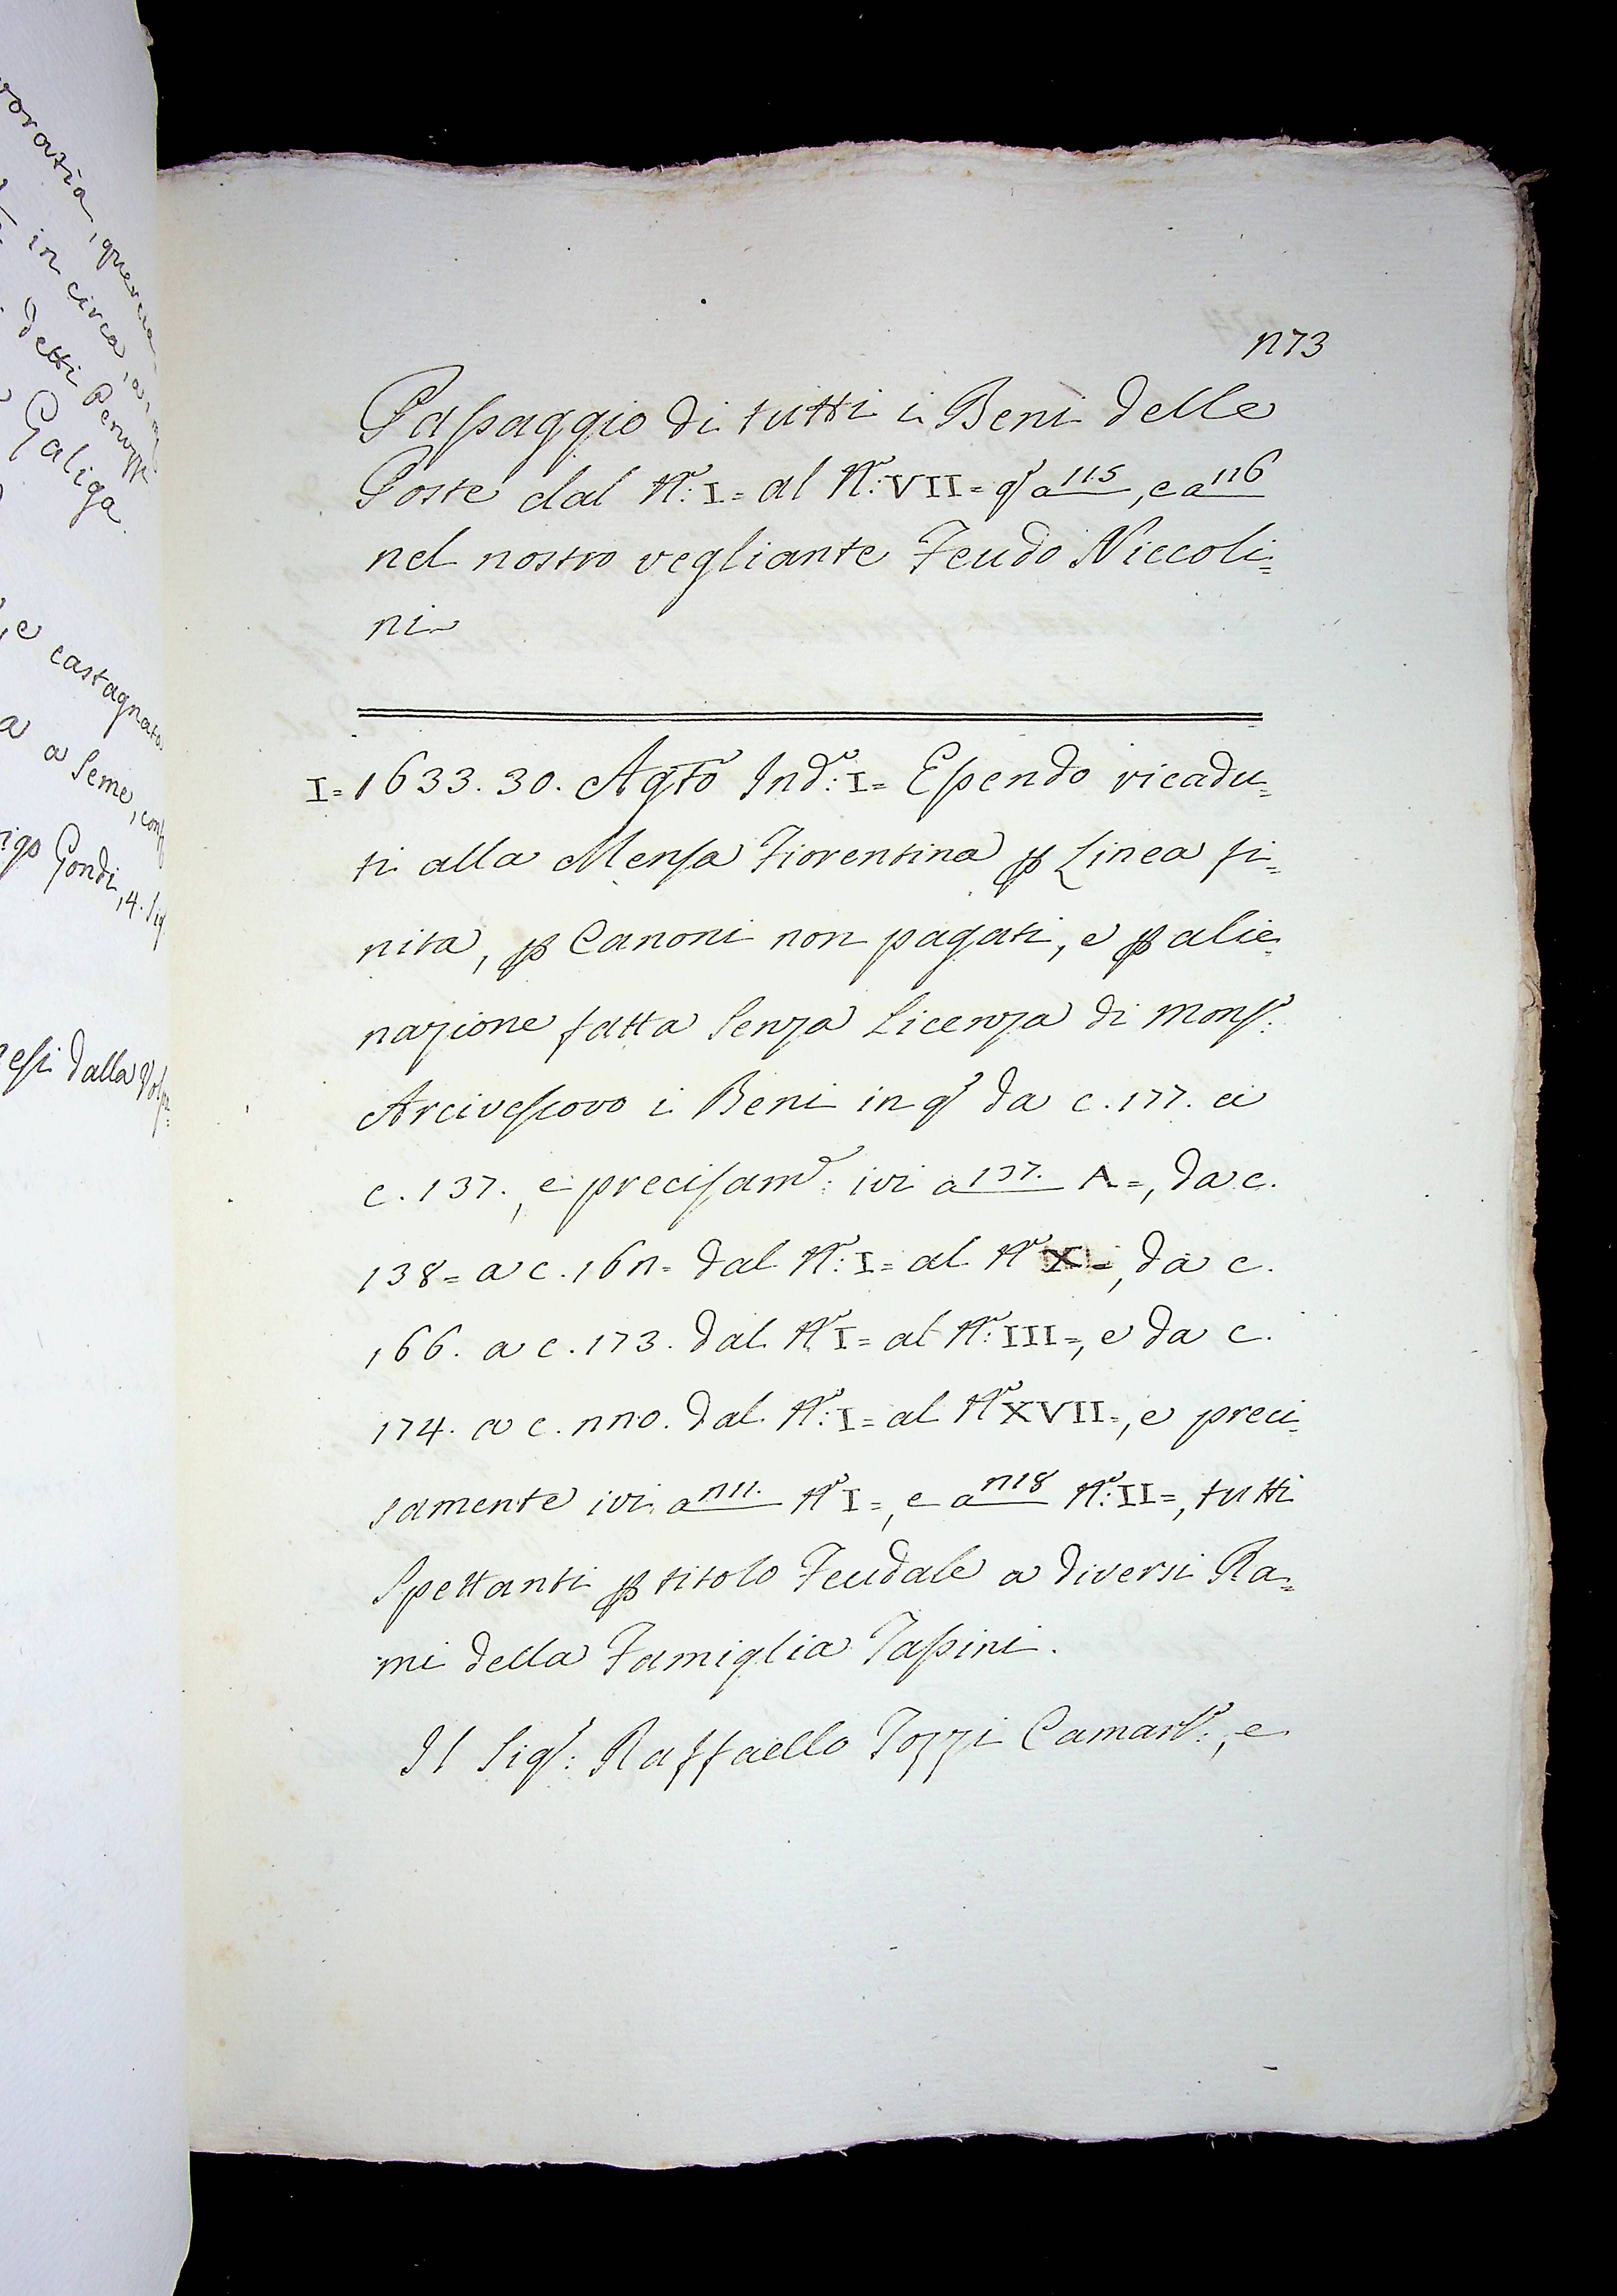 vorativa, quercia
in circa, a
detti Peruzzi
Galiga.
e castagnato
a a Seme, conf
rigo Gondi, 4. Sig
resi dalla Volpa
273
Passaggio di tutti i Beni delle
Poste dal N.º I= al N.º VII= qᵗ a 115, e a 126
nel nostro vegliante Feudo Niccoli=
ni
I= 1633. 30. Agto Indᵉ: I= Essendo ricadu=
ti alla Mensa Fiorentina ꝑ Linea fi=
nita, ꝑ Canoni non pagati, e ꝑ alie=
nazione fatta senza Licenza di Monsʳ:
Arcivescovo i Beni in qᵗ da c. 127. a
c. 137., e precisamᵉ: ivi a 137. A=, da c.
138= a c. 162= dal N.º I= al N.º X=, da c.
166. a c. 173. dal N.º I= al N.º III=, e da c.
174. a c. 220. dal N.º I= al N.º XVII=, e preci=
samente ivi a 211. N.º I=, e a 218 N.º II=, tutti
Spettanti ꝑ titolo Feudale a diversi Ra=
mi della Famiglia Tassini.
Il Sigʳ: Raffaello Tozzi Camarlᵒ:, e